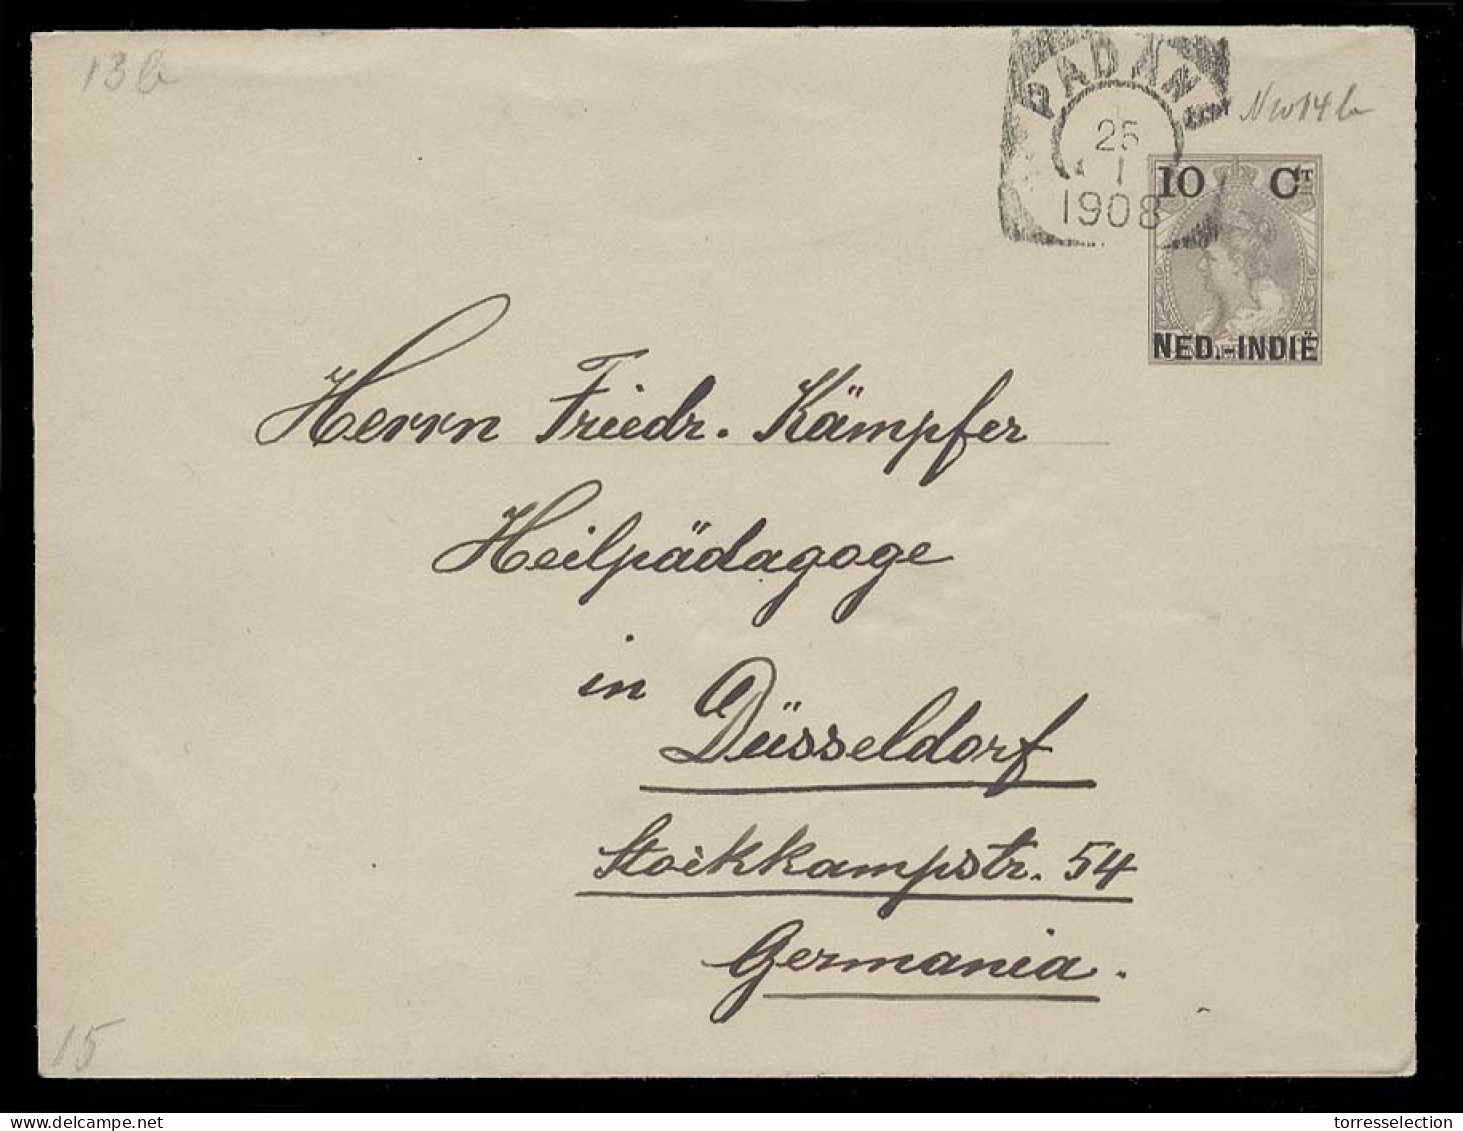 13b
PADANG
25
1
1908
10 CT
NED.-INDIË
Herrn Friedr. Kämpfer
Heilpädagoge
in
Düsseldorf
Stockkampstr. 54
Germania.
15
delcampe.net
torresselection